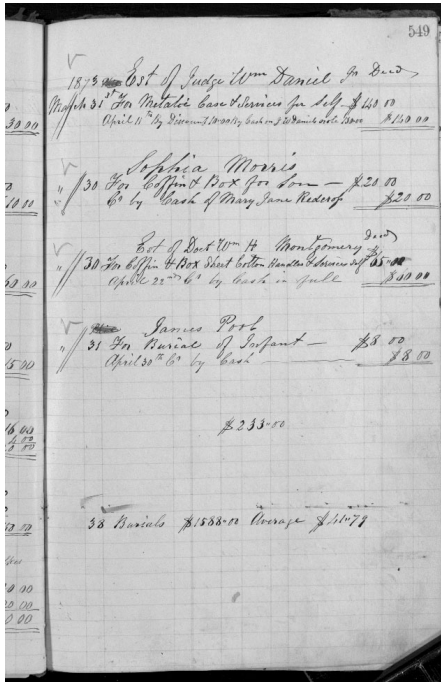 549
1873 Est of Judge Wm Daniel Jr Decd
March 31st For Metalic Case & Services for Self $140 00
April 11th By Discount 10.00 By Cash on 130.00 $140.00
Sophia Morris
" 30 For Coffin & Box for Son — $20 00
Cr by Cash of Mary Jane Redcrop $20 00
Est of Doct Wm H Montgomery Decd
" 30 For Coffin & Box Sheet Cotton Handles & Services Self $65.00
April 22nd Cr by Cash in full
James Pool
" 31 For Burial of Infant — $8 00
April 30th Cr by Cash — $8 00
$233-00
38 Burials $1588-00 Average $41-79
30 00
10 00
15 00